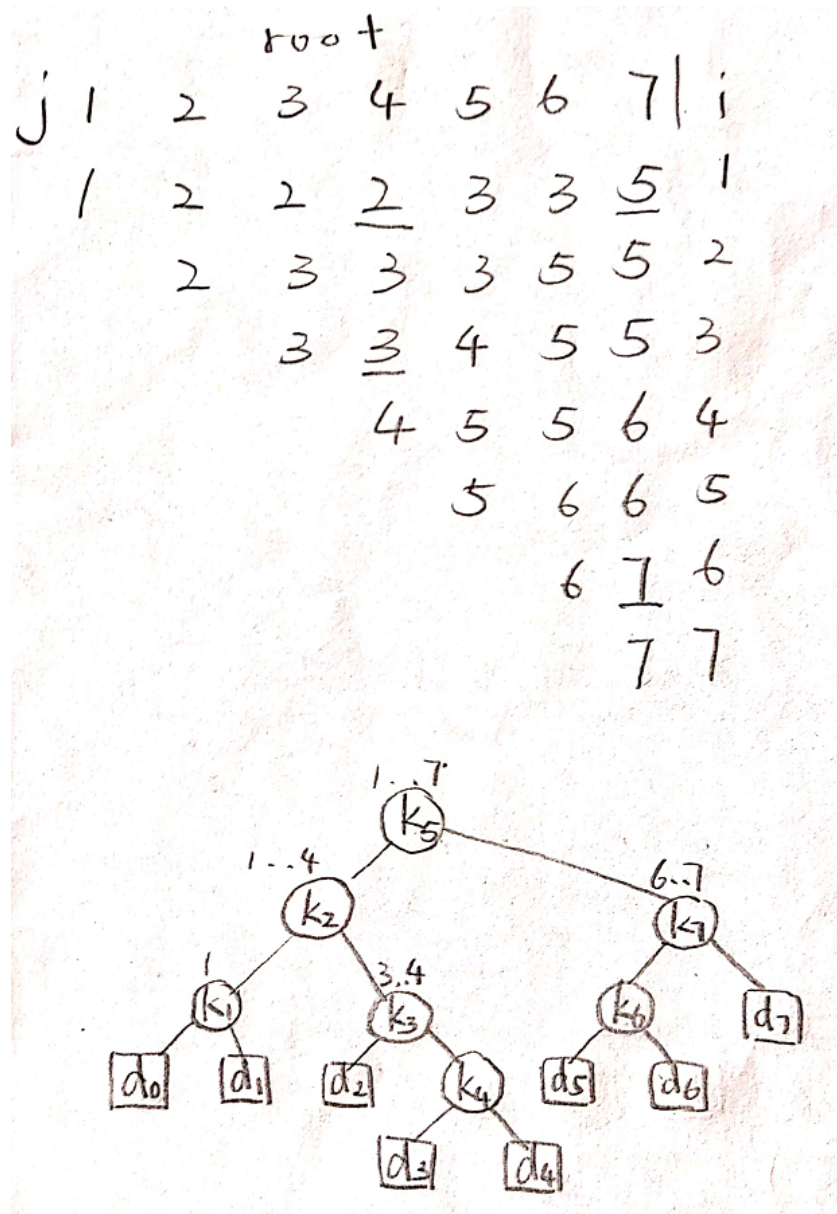 root
j 1 2 3 4 5 6 7 | i
1 2 2 2 3 3 5 1
2 3 3 3 5 5 2
3 3 4 5 5 3
4 5 5 6 4
5 6 6 5
6 7 6
7 7
1..7
k5
1...4 6..7
k2 k7
1 3..4
k1 k3 k6 d7
d0 d1 d2 k4 d5 d6
d3 d4